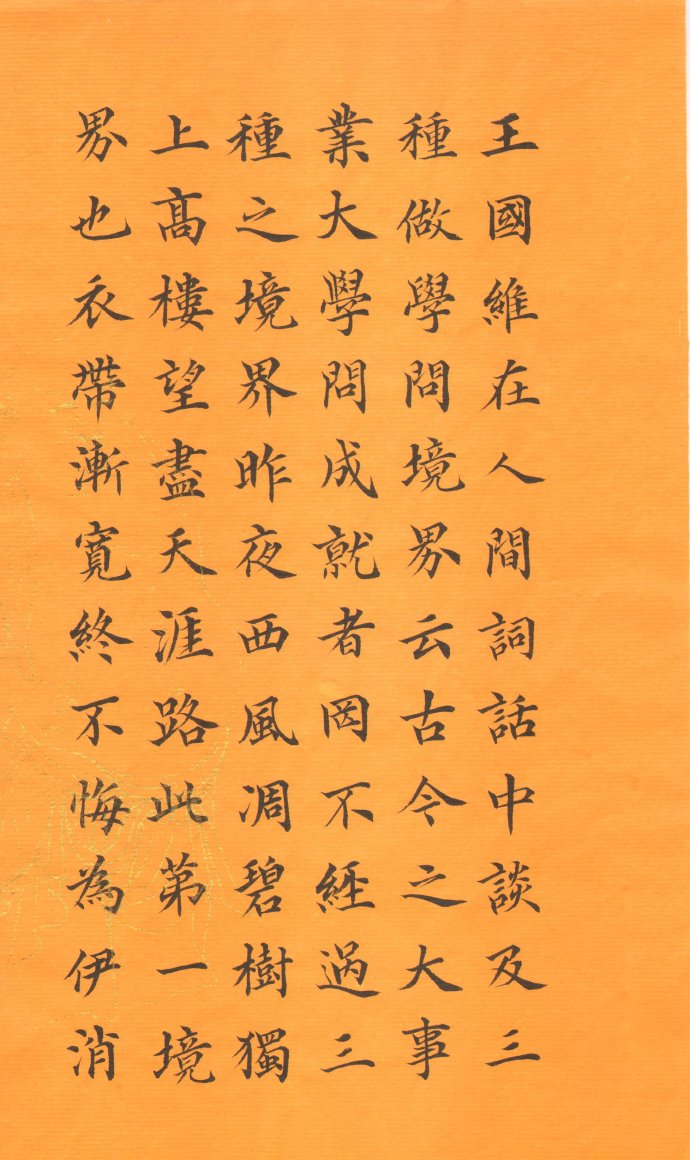 王國維在人間詞話中談及三
種做學問境界云古今之大事
業大學問成就者罔不經過三
種之境界昨夜西風凋碧樹獨
上高樓望盡天涯路此第一境
界也衣帶漸寬終不悔為伊消